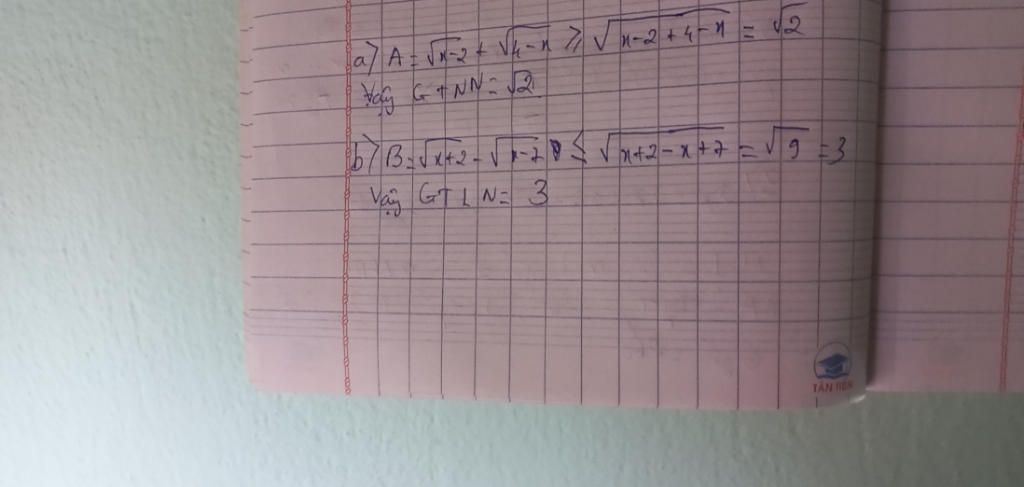 a) A = √x-2 + √4-x ≥ √x-2+4-x = √2
Vậy GTNN = √2
b) B = √x+2 - √x-7 ≤ √x+2-x+7 = √9 = 3
Vậy GTLN = 3
TÂN TIẾN